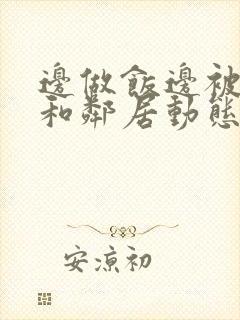 邊做飯邊被
和鄰居動態
安涼初